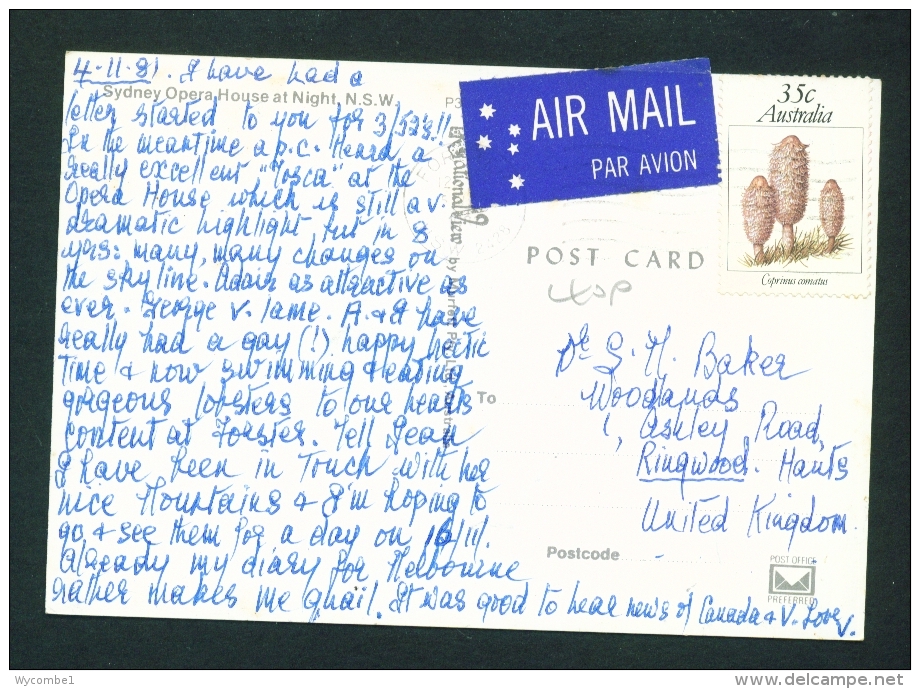 4-11-81. I have had a
Sydney Opera House at Night, N.S.W.
letter started to you for 3/52's!!
In the meantime a p.c. Heard a
really excellent "Tosca" at the
Opera House which is still a v.
dramatic highlight, but in 8
yrs: many, many changes on
the skyline. Adair as attractive as
ever. George v. lame. A. & I have
really had a gay (!) happy hectic
time & now swimming & eating
gorgeous lobsters to our hearts
content at Forster. Tell Jean
I have been in touch with her
nice Mountains & I'm hoping to
go & see them for a day on 16/11/.
Already my diary for Melbourne
rather makes me quail. It was good to hear news of Canada & V. Love
V.
AIR MAIL
PAR AVION
35c
Australia
Coprinus comatus
POST CARD
Dr G. H. Baker
To
Woodlands
1, Ashley Road,
Ringwood. Hants
United Kingdom.
Postcode
POST OFFICE
PREFERRED
National View
Wycombe1
delcampe.net